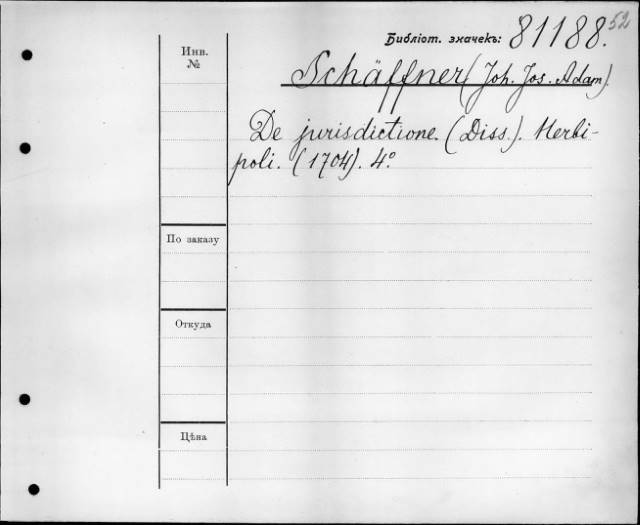 52
Библіот. значекъ: 81188.
Инв. №
Schäffner (Joh. Jos. Adam).
De jurisdictione. (Diss.). Herbi-
poli. (1704). 4°.
По заказу
Откуда
Цѣна